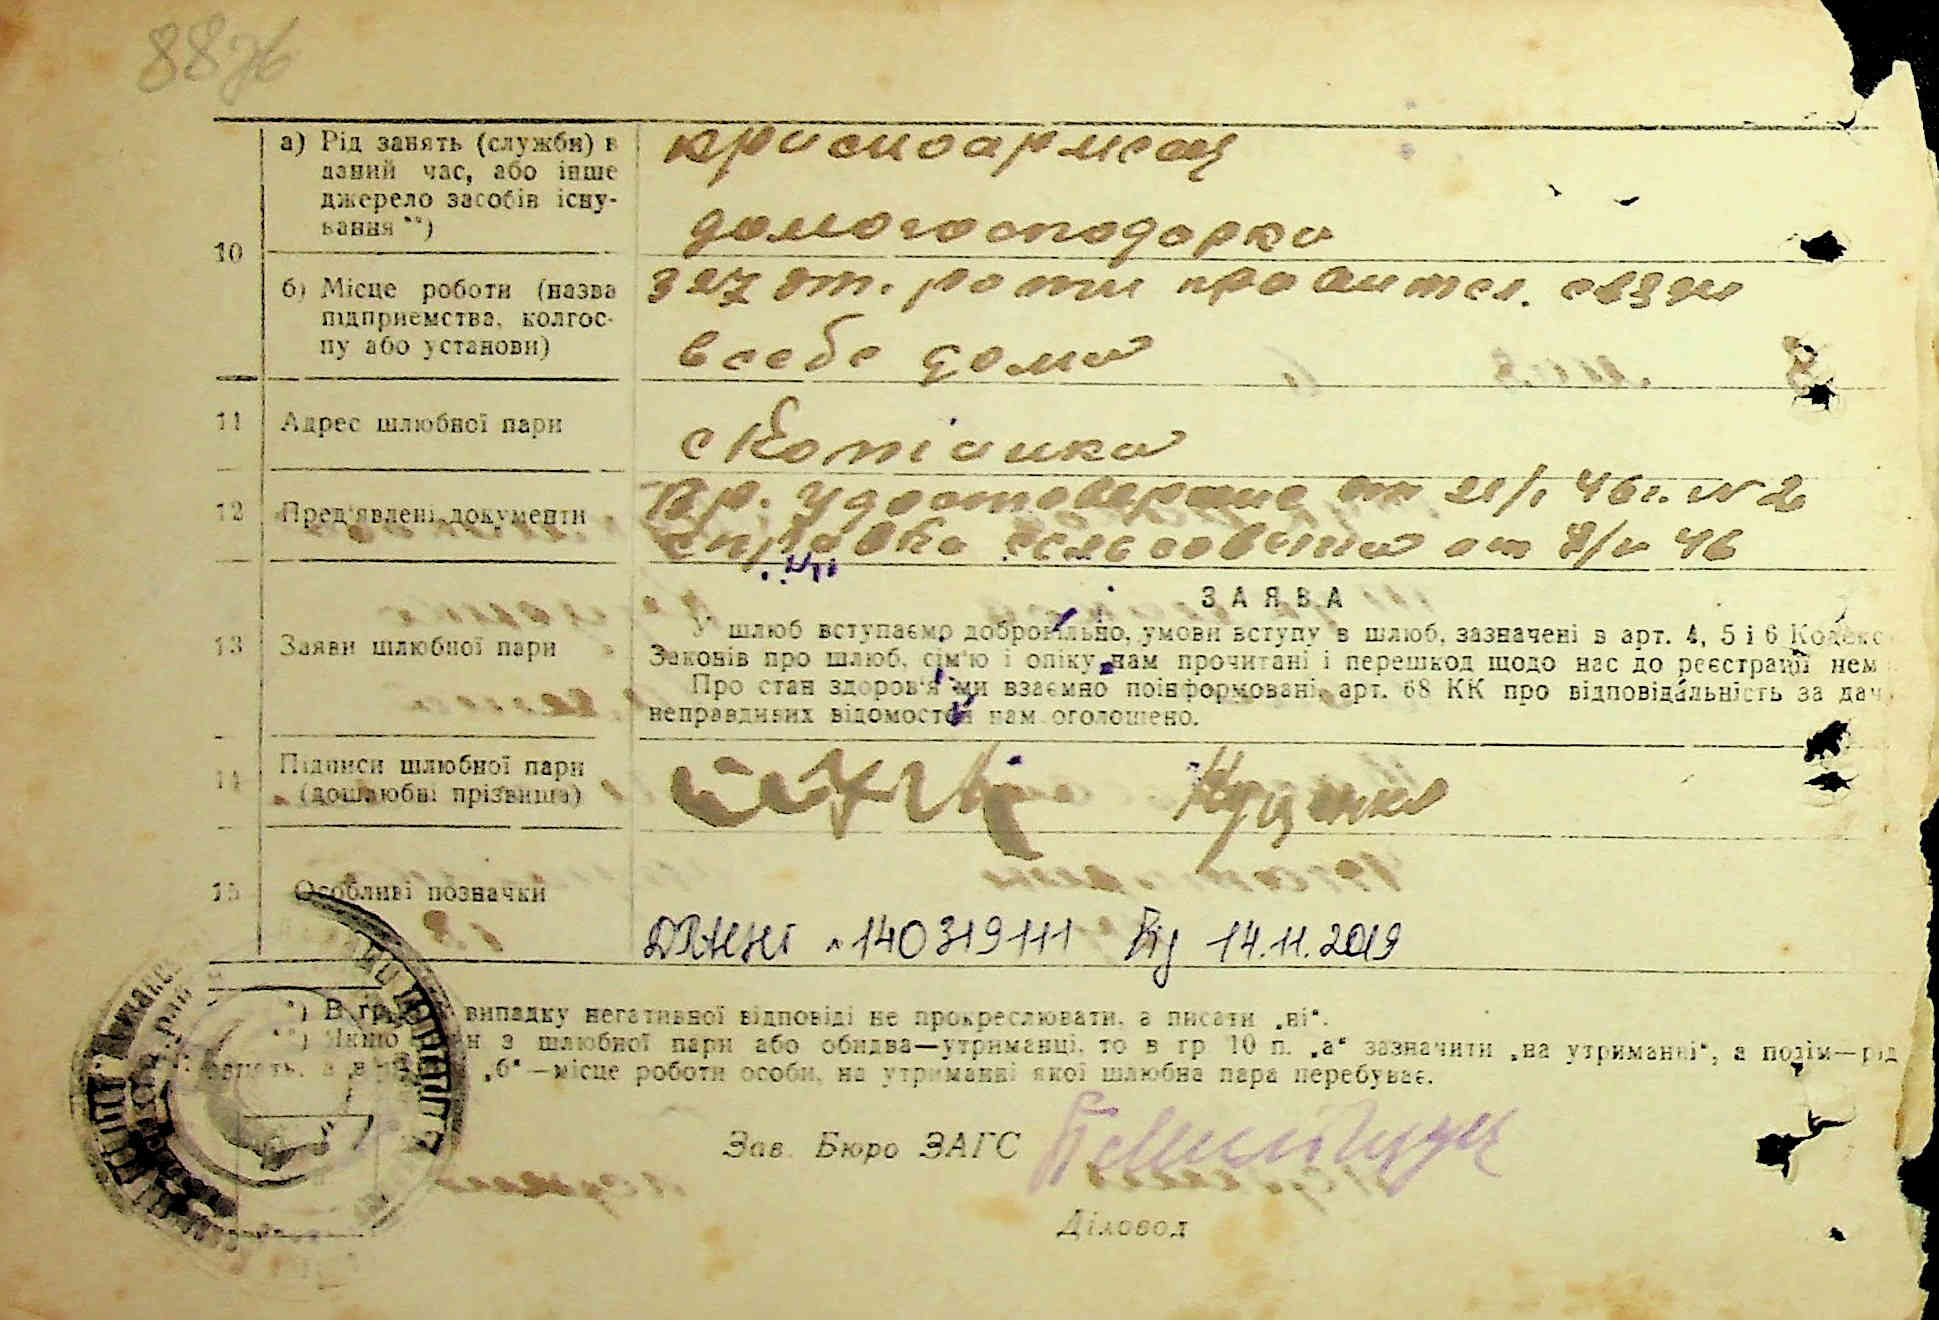 а) Рід занять (служби) в
даний час, або інше
джерело засобів існу-
вання **)
красноармеец
домогосподарка
10
б) Місце роботи (назва
підприємства, колгос-
пу або установи)
327 от. роты правител. связи
в себе дома
11 Адрес шлюбної пари
с Котіанка
12 Пред'явлені документи
Кр. удостоверение от 21/I 46г. N 2
справка сельсовета от 7/II 46
13 Заяви шлюбної пари
ЗАЯВА
У шлюб вступаємо добровільно, умови вступу в шлюб, зазначені в арт. 4, 5 і 6 Кодекс
Законів про шлюб, сім'ю і опіку нам прочитані і перешкод щодо нас до реєстрації нем
Про стан здоров'я ми взаємно поінформовані, арт. 68 КК про відповідальність за дач
неправдивих відомостей нам оголошено.
14 Підписи шлюбної пари
(дошлюбні прізвища)
Куценко
15 Особливі позначки
14.11.2019
*) В гр. випадку негативної відповіді не прокреслювати, а писати „ні“.
**) Якщо один з шлюбної пари або обидва—утриманці, то в гр 10 п. „а“ зазначити „на утриманні“, а потім—рід
занять, а в „б“—місце роботи особи, на утриманні якої шлюбна пара перебуває.
Зав. Бюро ЗАГС
Діловод